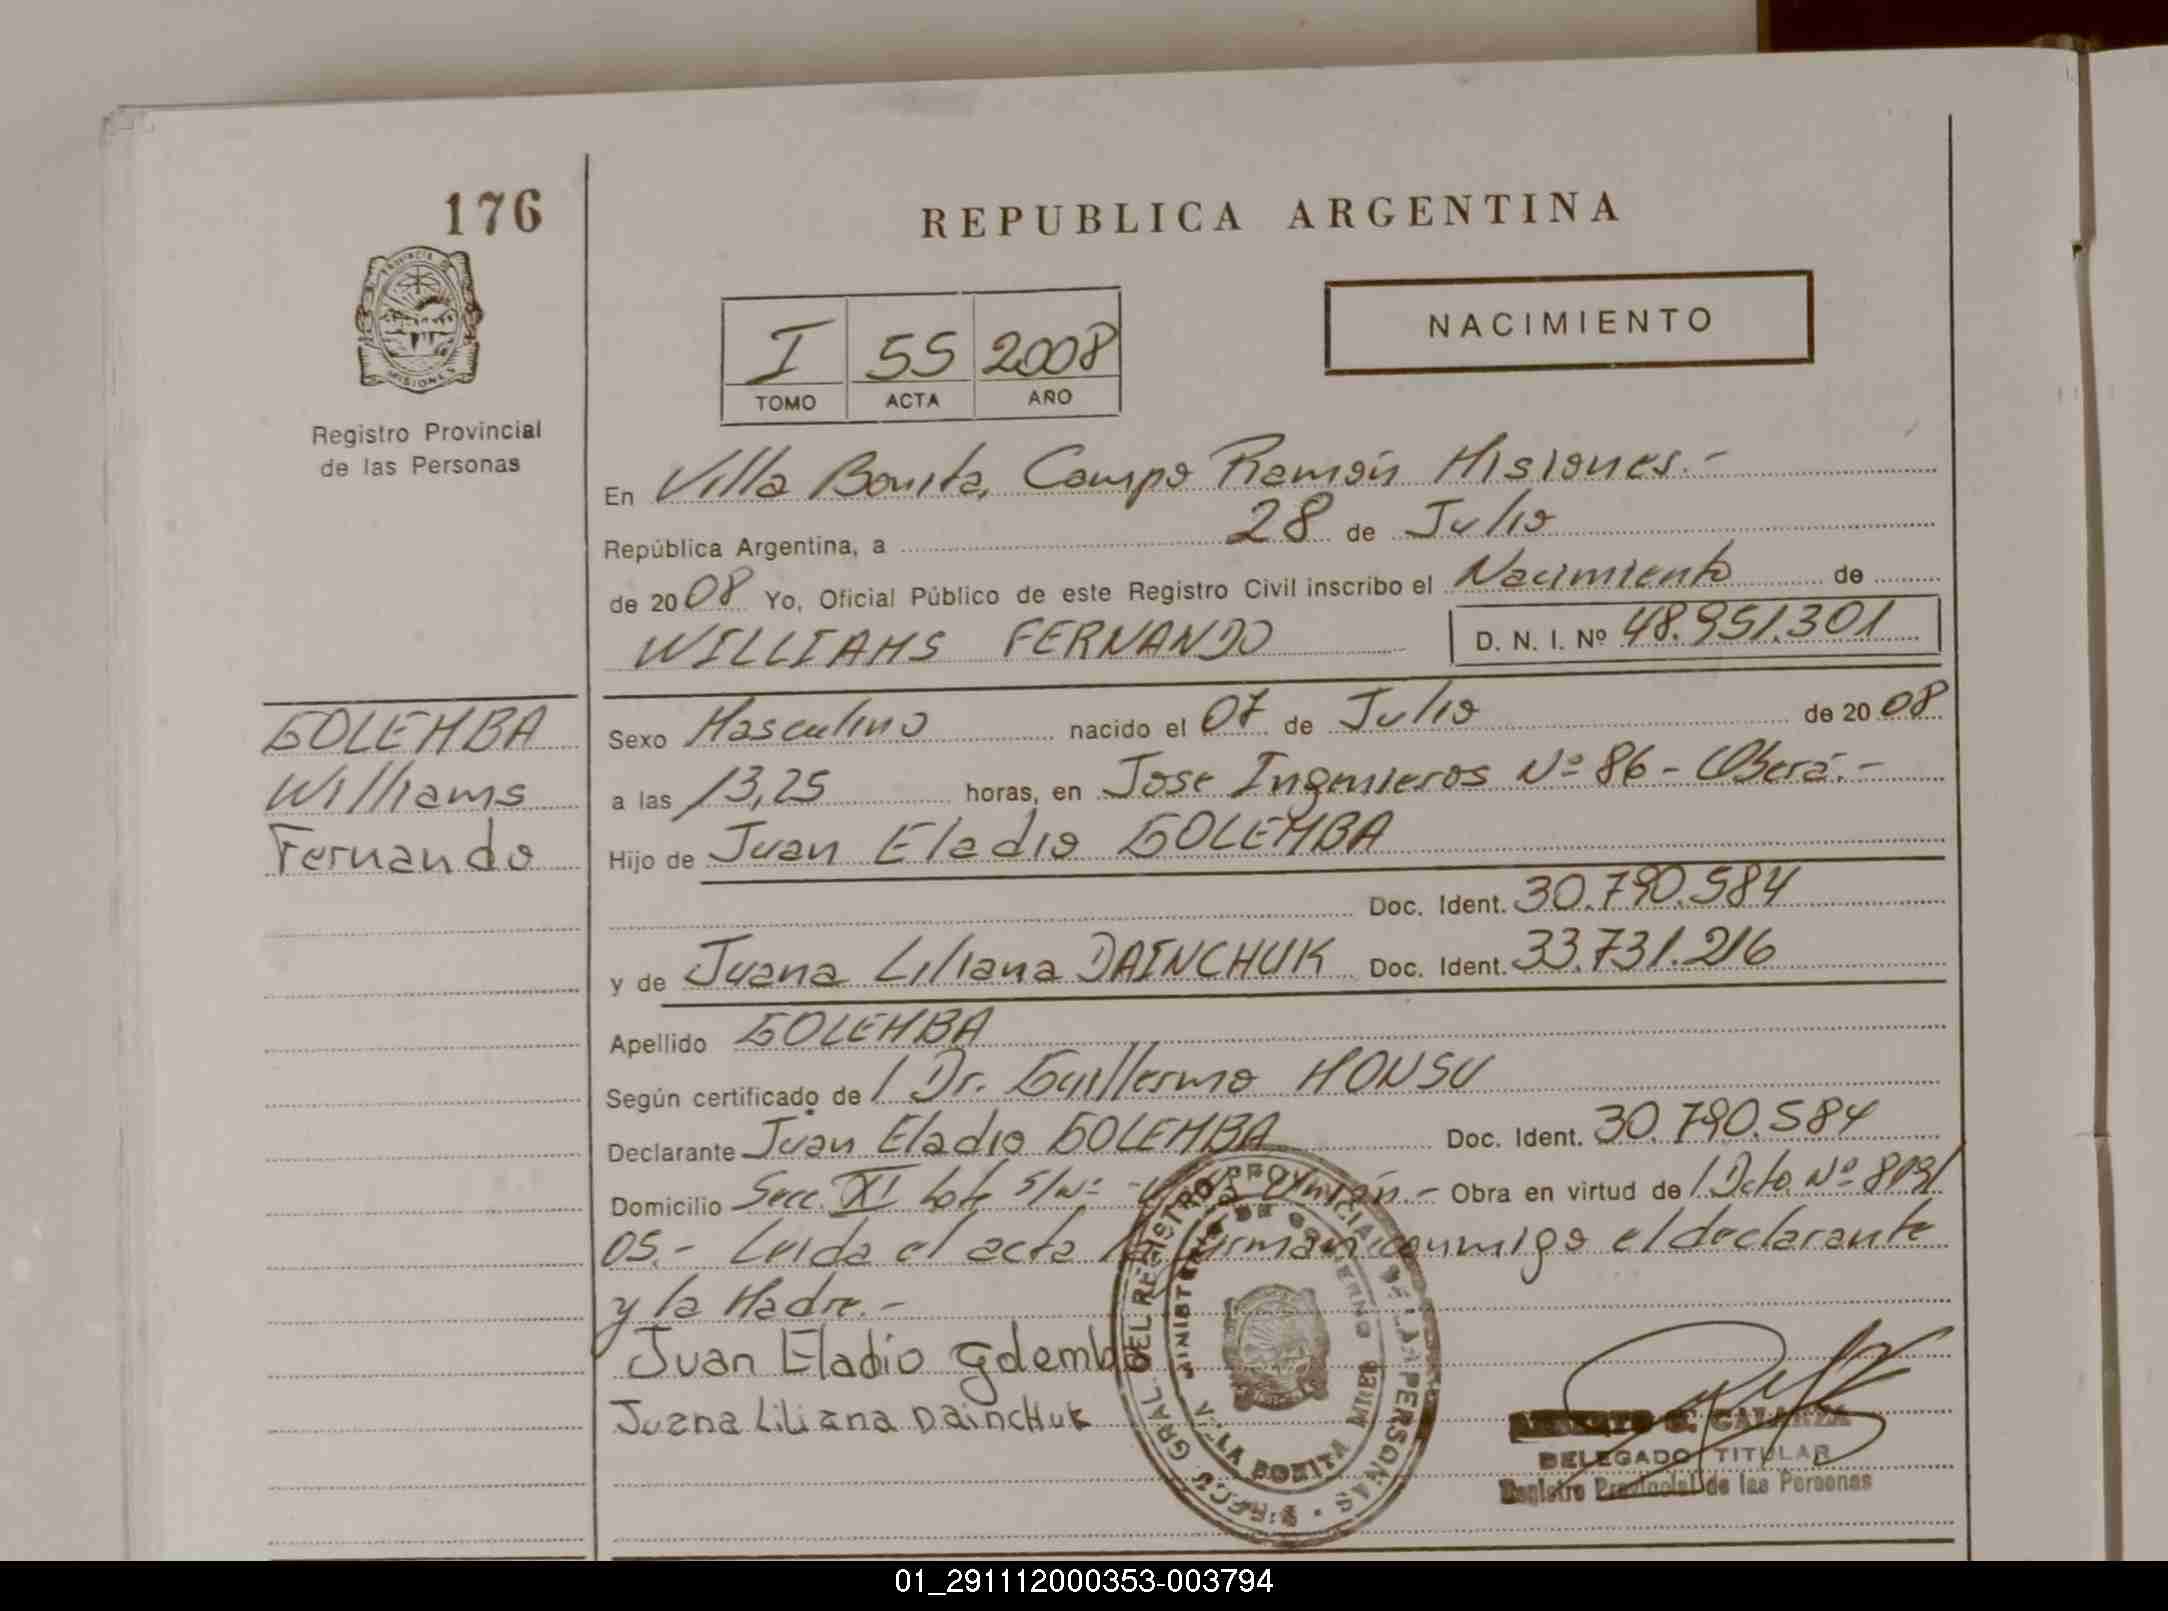 176
REPUBLICA ARGENTINA
NACIMIENTO
I 55 2008
TOMO ACTA AÑO
PROVINCIA DE
MISIONES
Registro Provincial
de las Personas
En Villa Bonita, Campo Ramón Misiones.-
República Argentina, a 28 de Julio
de 2008 Yo, Oficial Público de este Registro Civil inscribo el Nacimiento de
WILLIAMS FERNANDO D. N. I. Nº 48.951.301
GOLEMBA
Williams
Fernando
Sexo Masculino nacido el 07 de Julio de 2008
a las 13,25 horas, en Jose Ingenieros Nº 86 - Oberá.-
Hijo de Juan Eladio GOLEMBA
Doc. Ident. 30.790.584
y de Juana Liliana DAINCHUK Doc. Ident. 33.731.216
Apellido GOLEMBA
Según certificado de / Dr. Guillermo MONSU
Declarante Juan Eladio GOLEMBA Doc. Ident. 30.790.584
Domicilio Secc. XI Lote S/Nº - Obra en virtud de / Dcto. Nº
05.- Leida el acta la firman conmigo el declarante
y la Madre.-
Juan Eladio golemba
Juana Liliana DainCHuk
GRAL. DEL REGISTRO PROVINCIAL DE LAS PERSONAS
MINISTERIO DE GOBIERNO
VILLA BONITA
G. GALARZA
DELEGADO TITULAR
Registro Provincial de las Personas
01_291112000353-003794